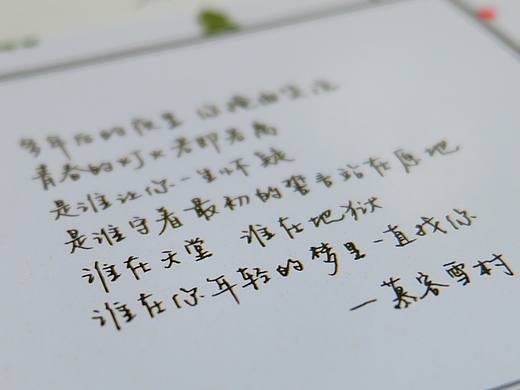 多年后的夜里 你掩面哭泣
青春的灯火若即若离
是谁让你一生怀疑
是谁守着最初的誓言站在原地
谁在天堂 谁在地狱
谁在你年轻的梦里一直找你
—慕容雪村